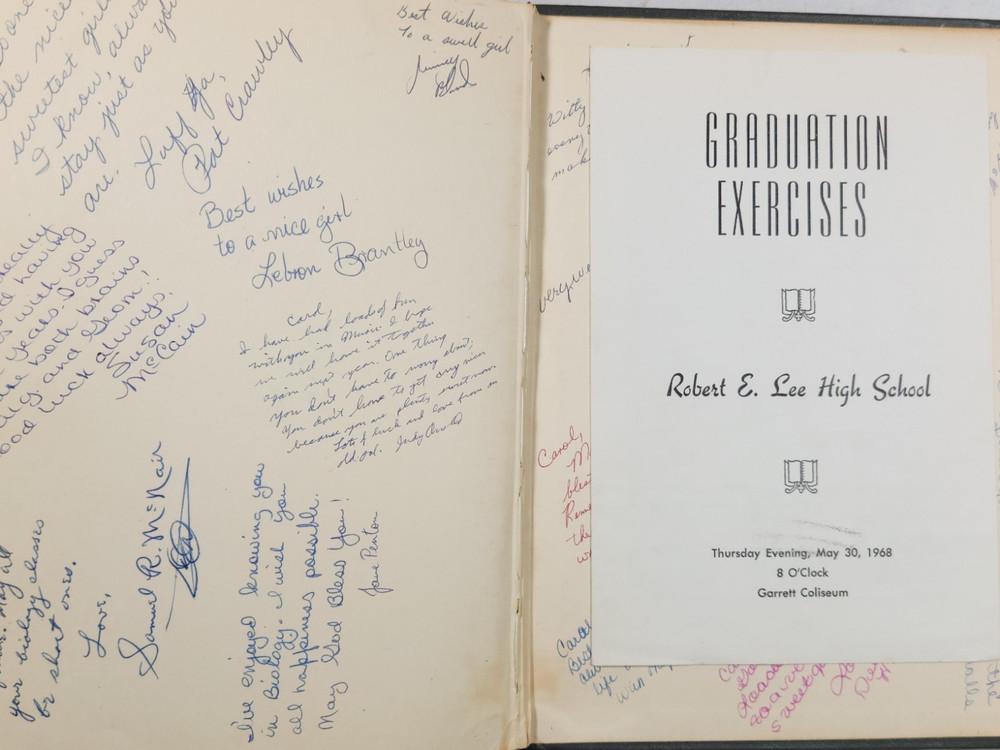 the nice
sweetest girl
I know, alwa
stay just as yo
are.
Luff Ya,
Pat Crawley
Best Wishes
To a swell girl
Best wishes
to a nice girl
Lebron Brantley
really
having
with you
years. I guess
both brains
and Geom!
luck always,
Susan
McCain
Carol,
I have had loads of fun
with you in Music. I hope
we will have it together
again next year. One thing
you don't have to worry about,
you don't have to get any nicer
because you are plenty sweet now.
Lots of luck and love from an
old pal.
May all
your biology classes
be short ones.
Love,
Samuel R. McNair
I've enjoyed knowing you
in Biology. I wish you
all happiness possible.
May God Bless You!
Jane Penton
Witty
mak
very
Carol,
bles
the
life
Wish
GRADUATION
EXERCISES
Robert E. Lee High School
Thursday Evening, May 30, 1968
8 O'Clock
Garrett Coliseum